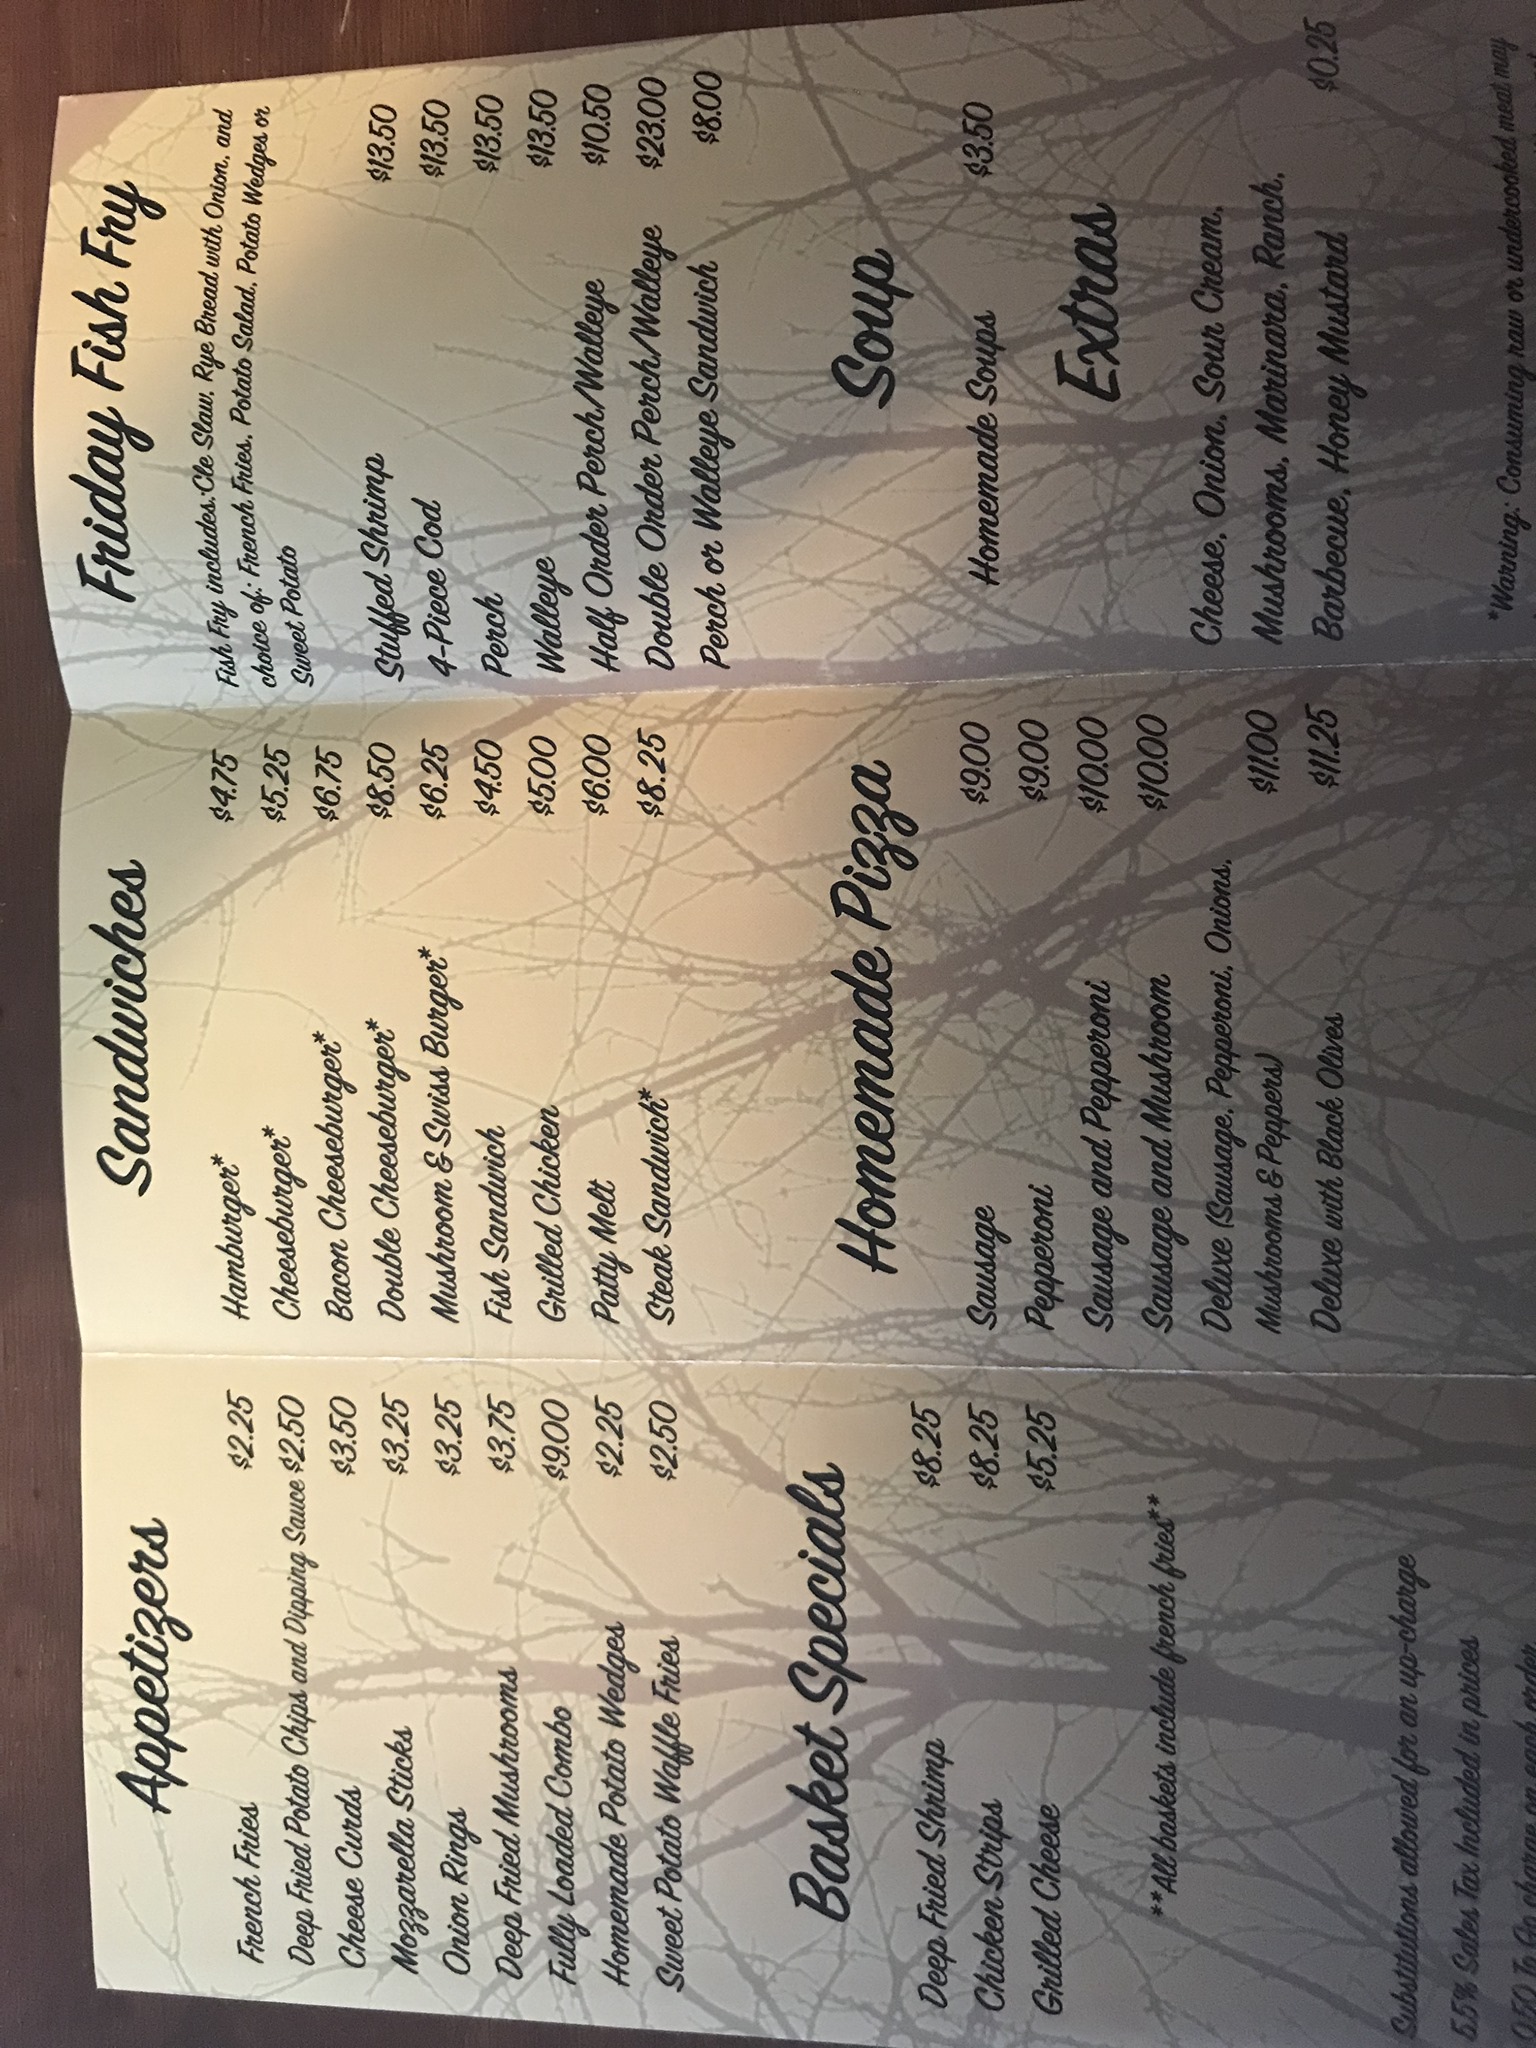 Appetizers
French Fries $2.25
Deep Fried Potato Chips and Dipping Sauce $2.50
Cheese Curds $3.50
Mozzarella Sticks $3.25
Onion Rings $3.25
Deep Fried Mushrooms $3.75
Fully Loaded Combo $9.00
Homemade Potato Wedges $2.25
Sweet Potato Waffle Fries $2.50
Basket Specials
Deep Fried Shrimp $8.25
Chicken Strips $8.25
Grilled Cheese $5.25
**All baskets include french fries**
Substitutions allowed for an up-charge
5.5% Sales Tax Included in prices
Sandwiches
Hamburger* $4.75
Cheeseburger* $5.25
Bacon Cheeseburger* $6.75
Double Cheeseburger* $8.50
Mushroom & Swiss Burger* $6.25
Fish Sandwich $4.50
Grilled Chicken $5.00
Patty Melt $6.00
Steak Sandwich* $8.25
Homemade Pizza
Sausage $9.00
Pepperoni $9.00
Sausage and Pepperoni $10.00
Sausage and Mushroom $10.00
Deluxe (Sausage, Pepperoni, Onions,
Mushrooms & Peppers) $11.00
Deluxe with Black Olives $11.25
Friday Fish Fry
Fish Fry includes: Cle Slaw, Rye Bread with Onion, and
choice of: French Fries, Potato Salad, Potato Wedges or
Sweet Potato
Stuffed Shrimp $13.50
4-Piece Cod $13.50
Perch $13.50
Walleye $13.50
Half Order Perch/Walleye $10.50
Double Order Perch/Walleye $23.00
Perch or Walleye Sandwich $8.00
Soup
Homemade Soups $3.50
Extras
Cheese, Onion, Sour Cream,
Mushrooms, Marinara, Ranch,
Barbecue, Honey Mustard $0.25
*Warning: Consuming raw or undercooked meat may